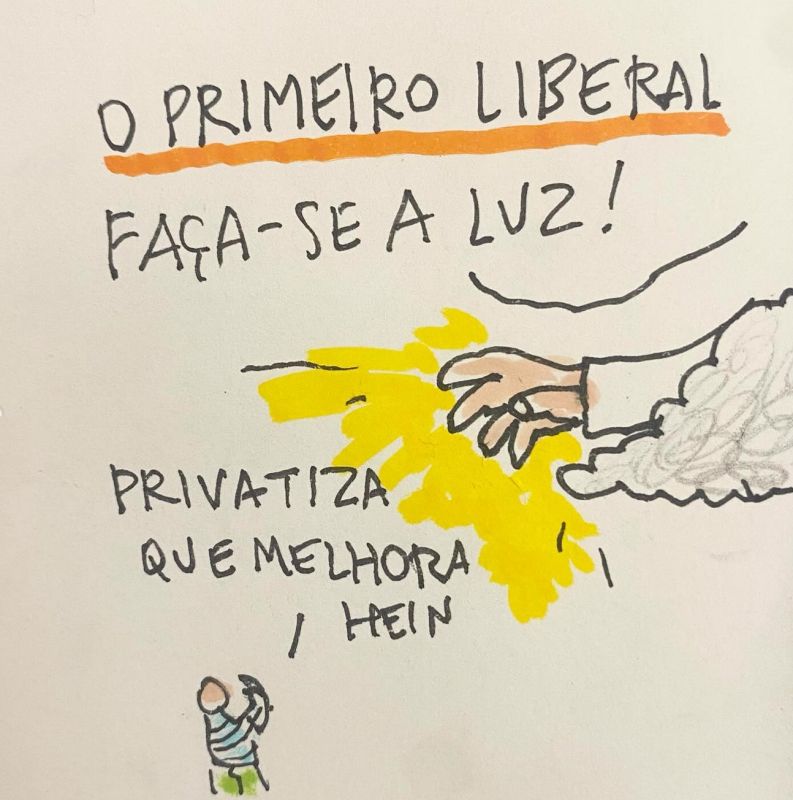 O PRIMEIRO LIBERAL
FAÇA-SE A LUZ!
PRIVATIZA
QUE MELHORA
HEIN